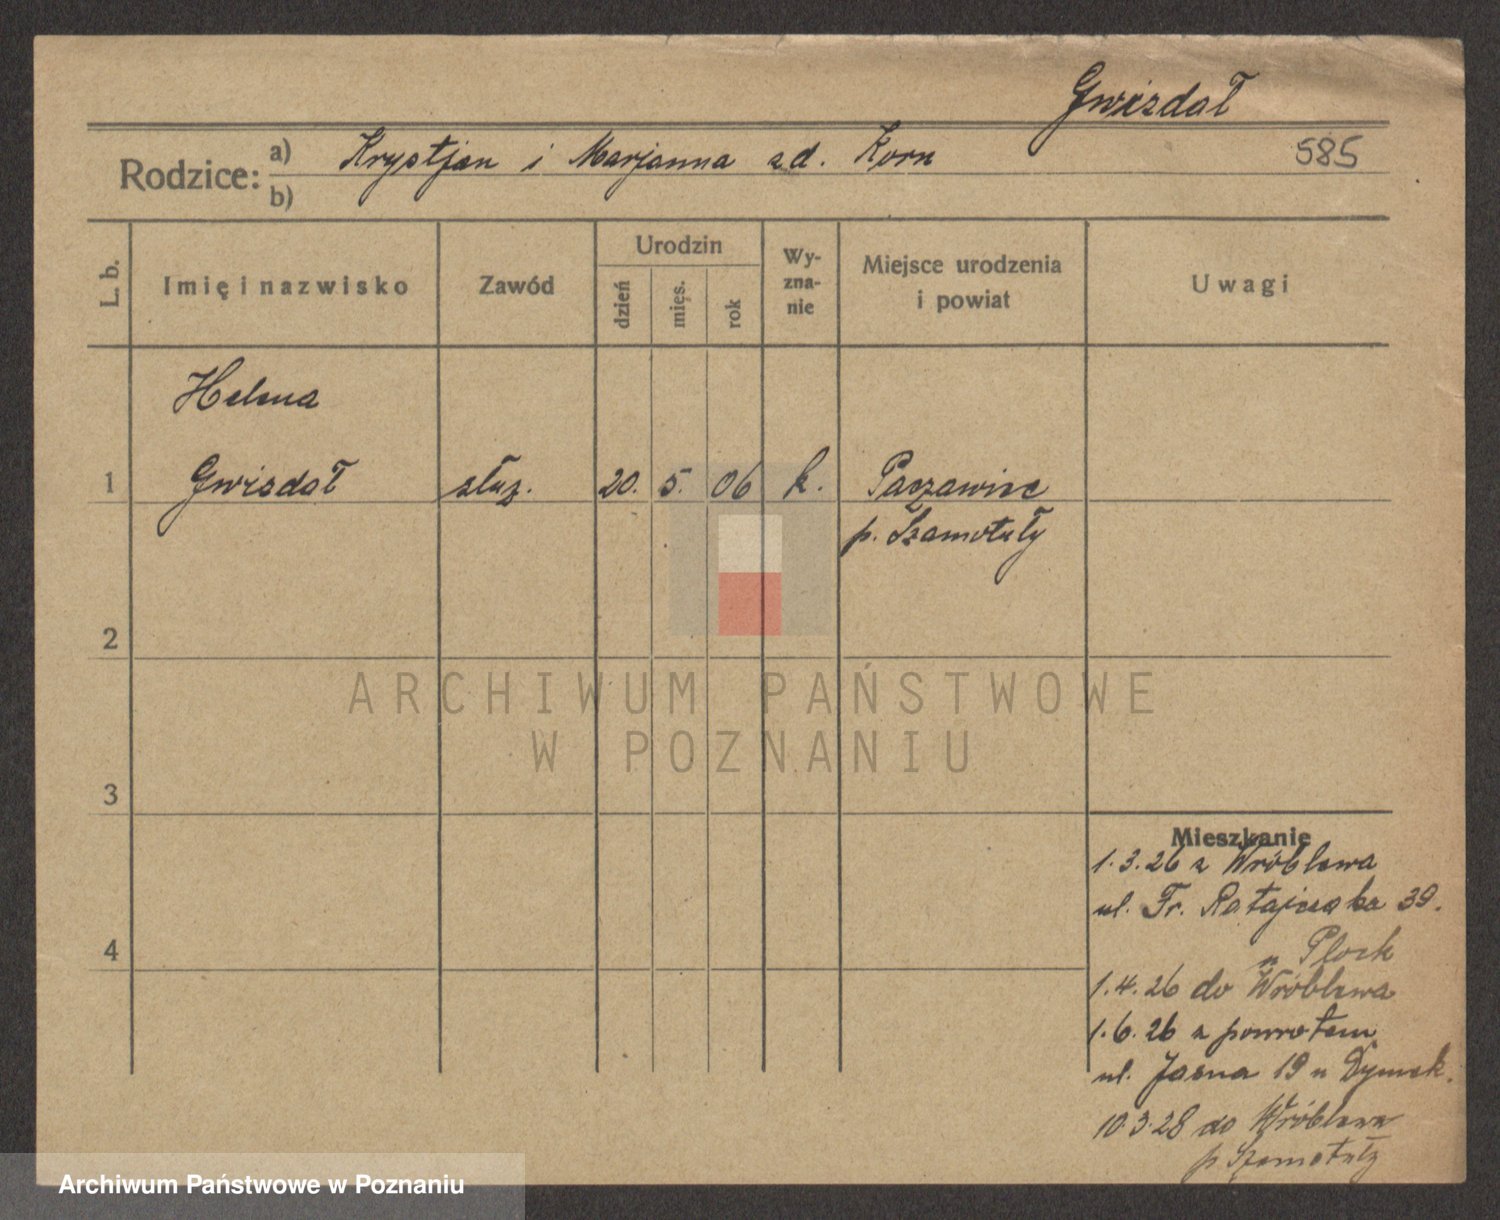 Gwizdał
585
Rodzice: a) Krystjan i Marjanna zd. Korn
b)
L. b.
Imię i nazwisko
Zawód
Urodzin
dzień
mięs.
rok
Wy-
zna-
nie
Miejsce urodzenia
i powiat
Uwagi
Helena
1 Gwizdał służ. 20. 5. 06 k.
p. Szamotuły
2
3
4
Mieszkanie
1.3.26 z Wróblewa
ul. Fr. Ratajczaka 39.
u Plock
1.4.26 do Wróblewa
1.6.26 z powrotem
ul. Jasna 19 u Dymek.
10.3.28 do Wróblewa
p Szamotuły
ARCHIWUM PAŃSTWOWE
W POZNANIU
Archiwum Państwowe w Poznaniu